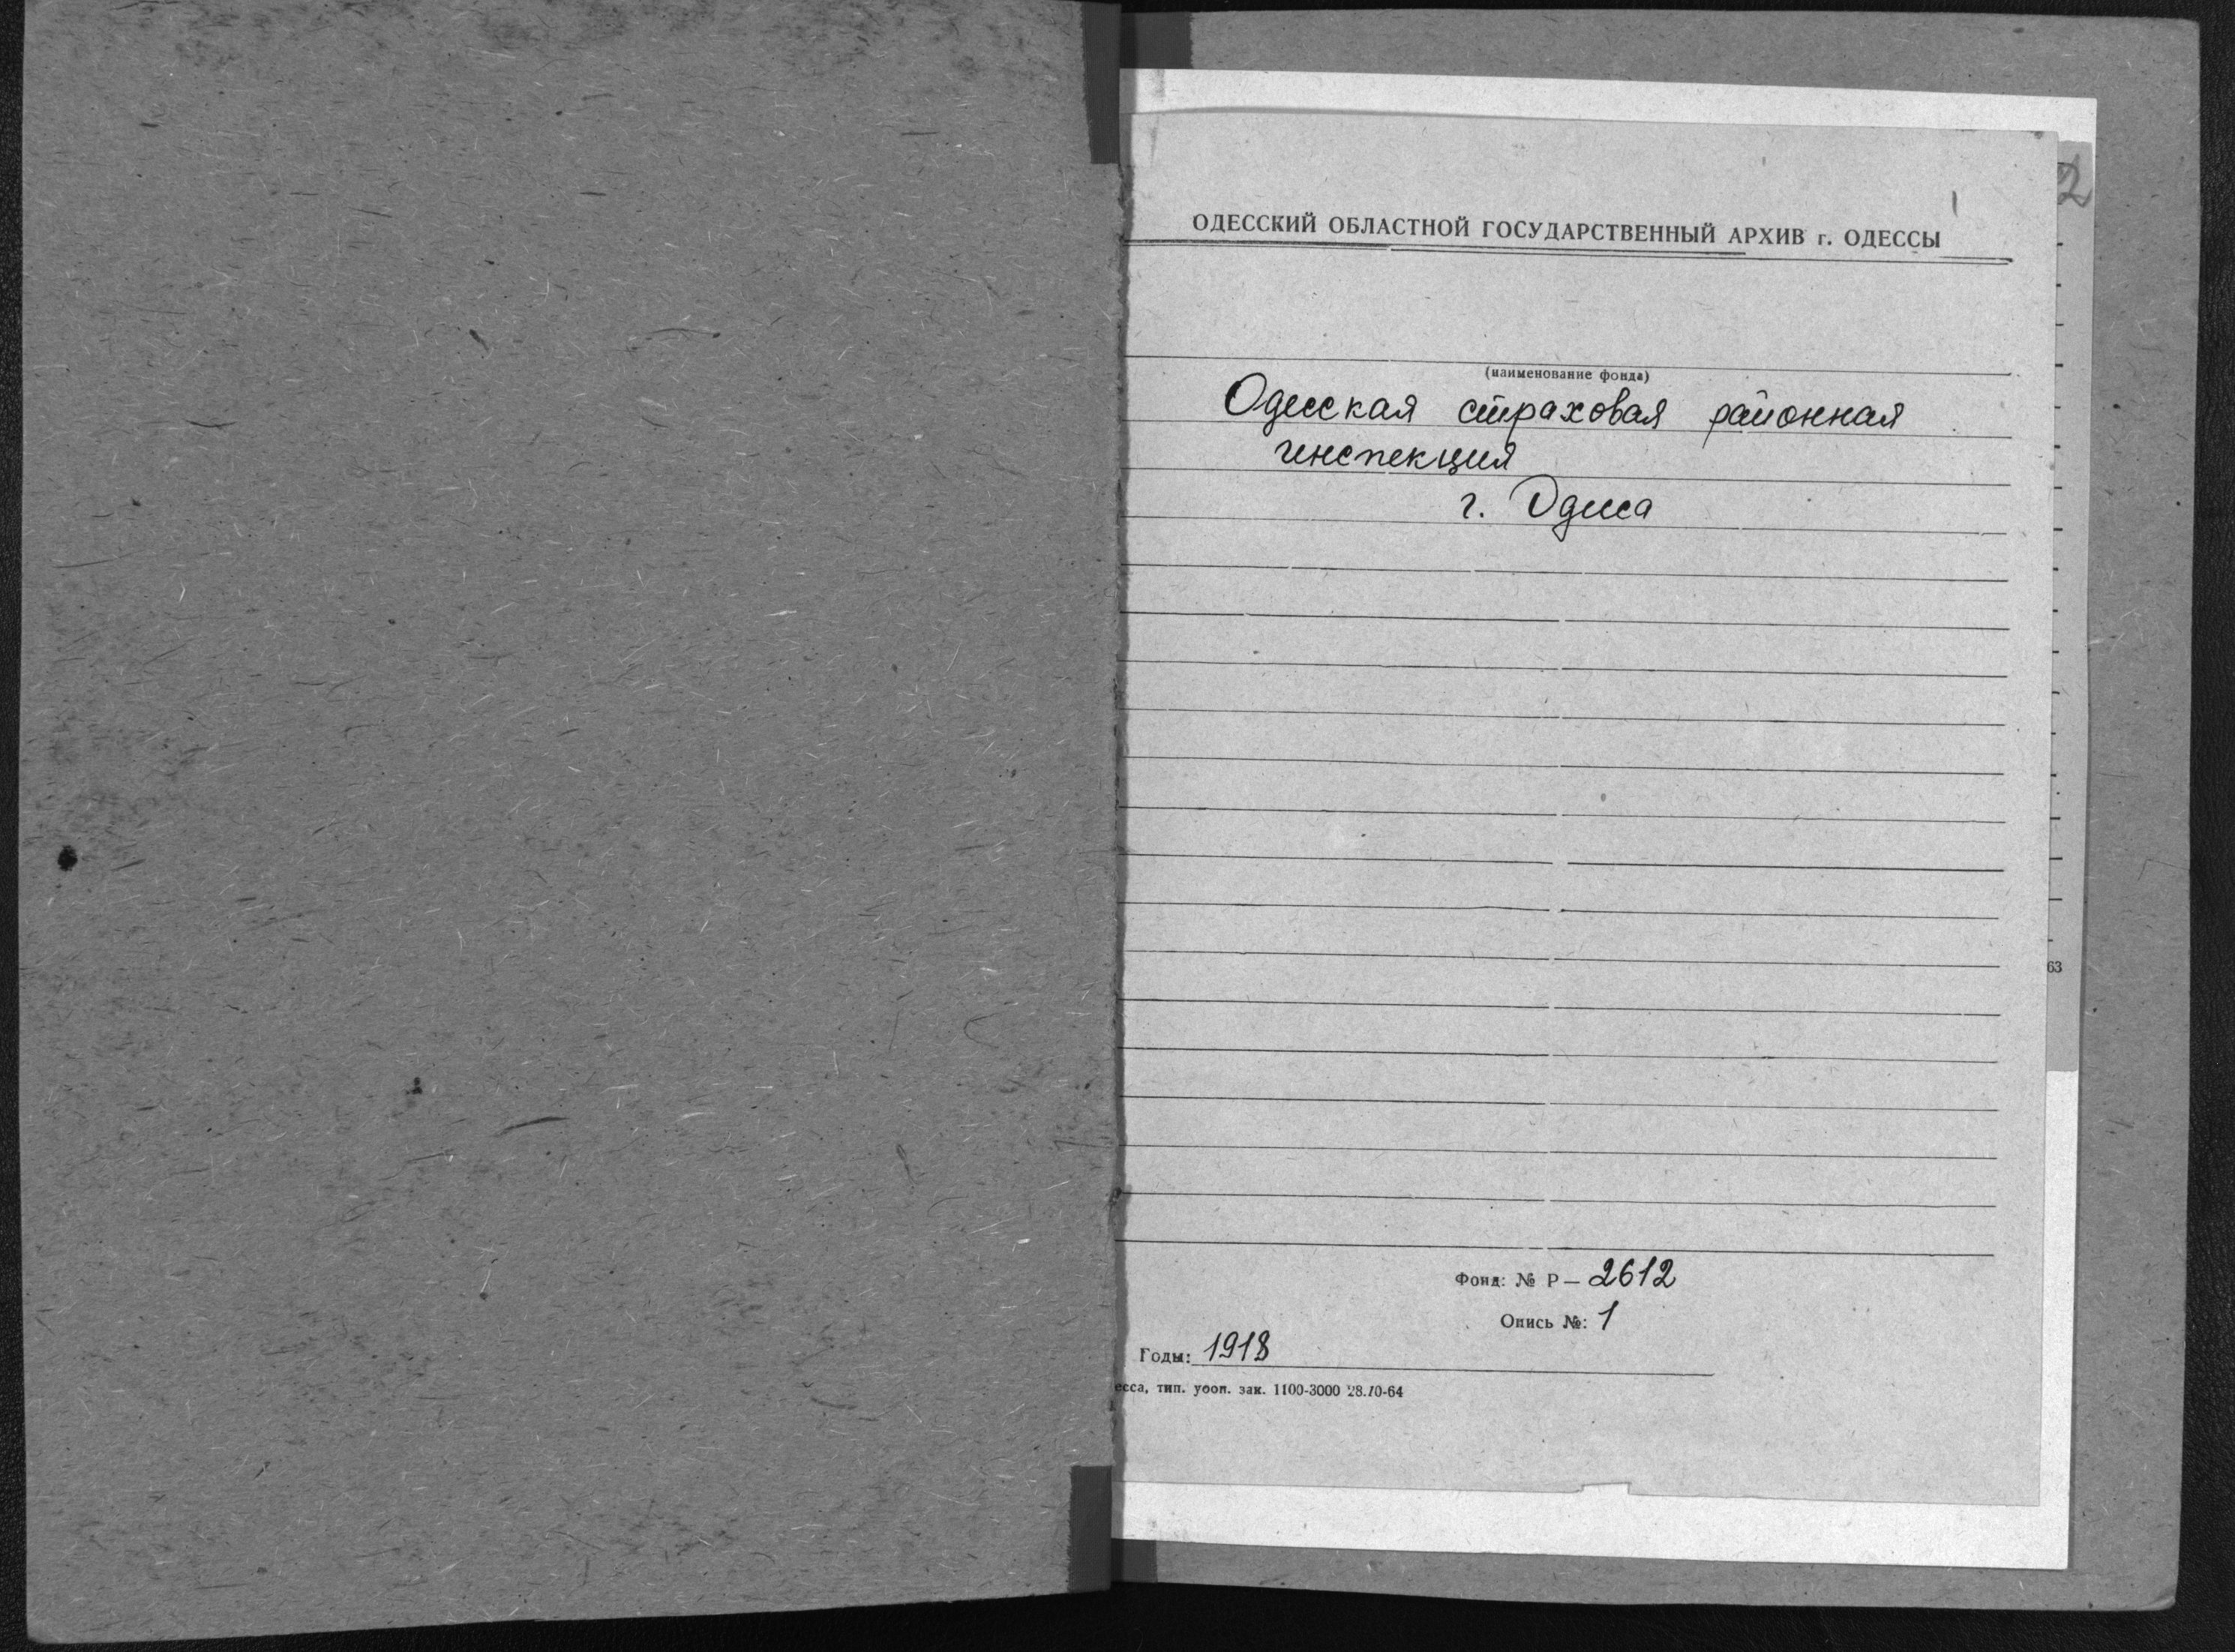 1
2
ОДЕССКИЙ ОБЛАСТНОЙ ГОСУДАРСТВЕННЫЙ АРХИВ г. ОДЕССЫ
(наименование фонда)
Одесская страховая районная
инспекция
г. Одесса
63
Фонд: № Р— 2612
Опись №: 1
Годы: 1918
есса, тип. уооп. зак. 1100-3000 28.10-64